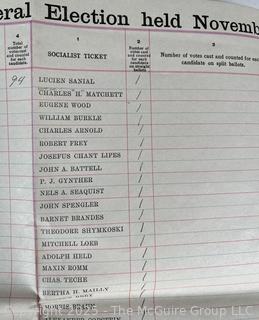 eral Election held Novemb
4
Total number of votes cast and counted for each candidate.
1
SOCIALIST TICKET
2
Number of votes cast and counted for each candidate on straight ballots.
3
Number of votes cast and counted for each candidate on split ballots.
94
LUCIEN SANIAL /
CHARLES H. MATCHETT /
EUGENE WOOD /
WILLIAM BURKLE /
CHARLES ARNOLD /
ROBERT FREY /
JOSEFUS CHANT LIPES /
JOHN A. BATTELL /
P. J. GYNTHER /
NELS A. SEAQUIST /
JOHN SPENGLER /
BARNET BRANDES /
THEODORE SHYMKOSKI /
MITCHELL LOEB /
ADOLPH HELD /
MAXIN ROMM /
CHAS. TECHE /
BERTHA H. MAILLY /
Copyright 2025 - The McGuire Group